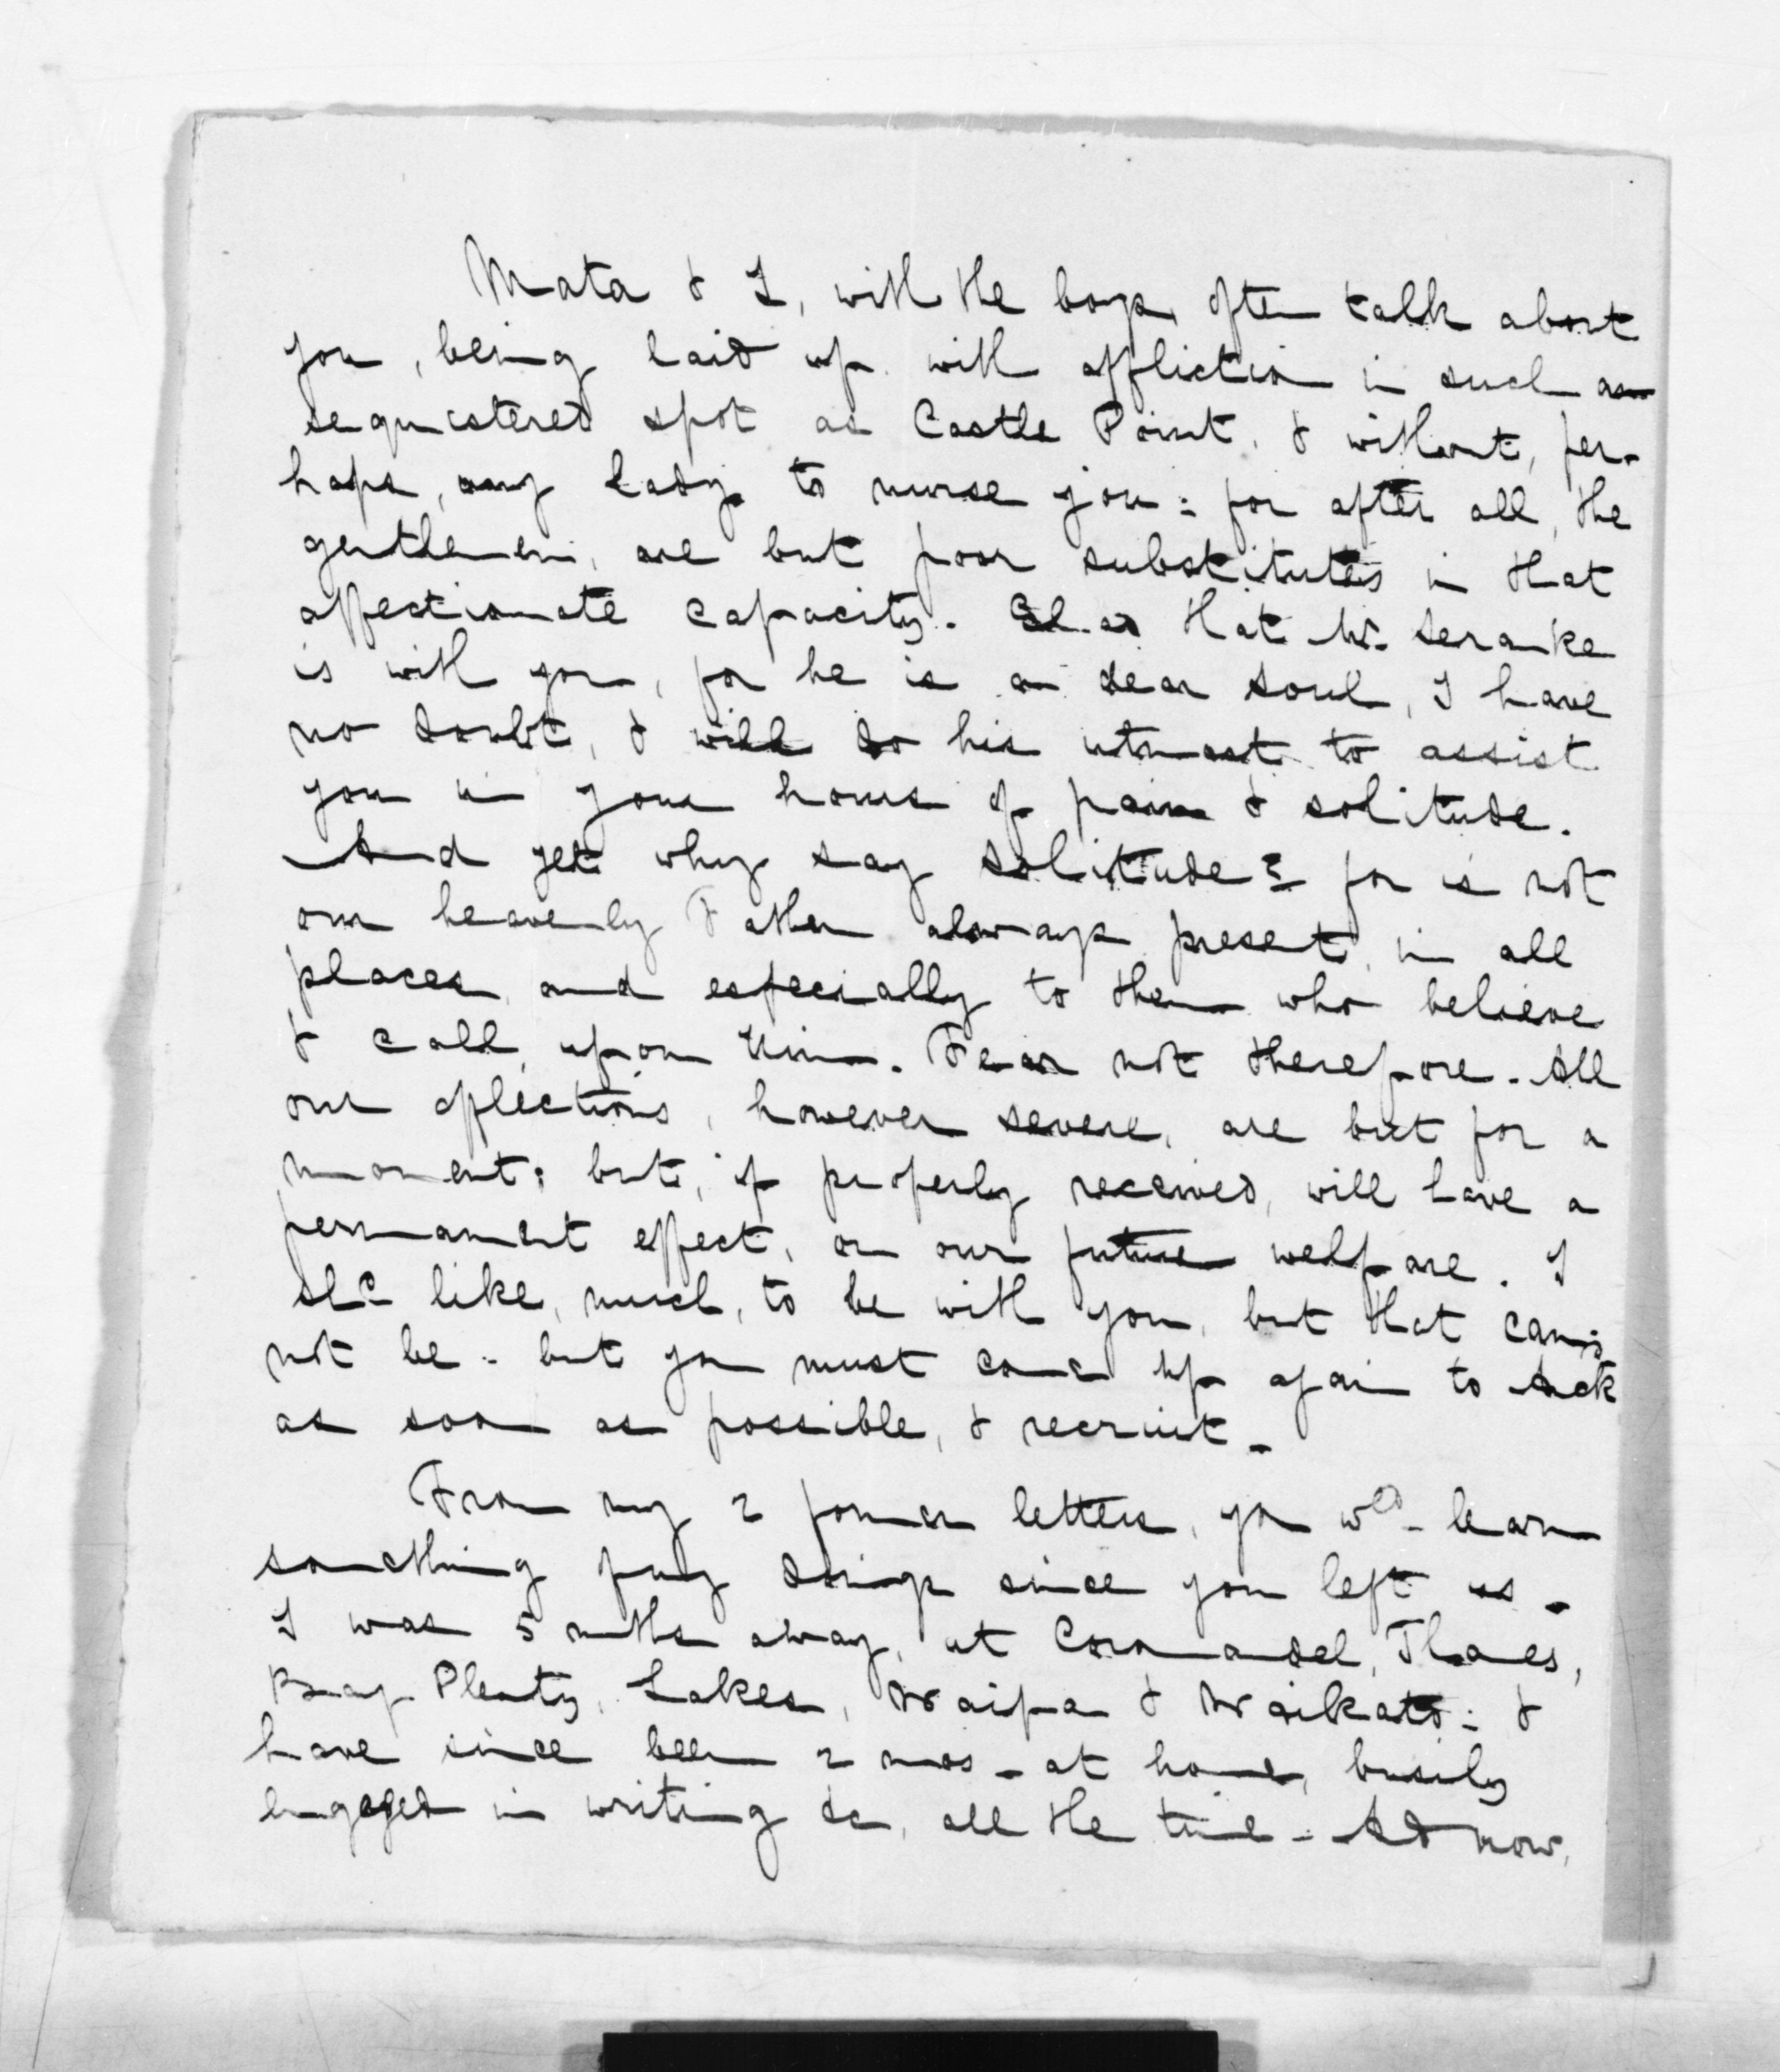 Mata & I, with the boys, often talk about
you, being laid up with affliction in such a
sequestered spot as Castle Point, & without, per-
haps, any lady to nurse you: for after all, the
gentlemen, are but poor substitutes in that
affectionate capacity. Glad that Mr.
is with you, for he is a dear soul, I have
no doubt, & will do his utmost to assist
you in your hours of pain & solitude.
And yet why say solitude? for is not
our heavenly Father always present, in all
places, and especially to them who believe
& call, upon Him. Fear not therefore. All
our afflictions, however severe, are but for a
moment; but, if properly received, will have a
permanent effect, on our future welfare. I
shd like, much, to be with you, but that can-
not be - but you must come up again to Auck
as soon as possible, & recruit.
From my 2 former letters, you wd learn
something of my doings since you left us.
I was 5 mths away, at Coromandel, Thames,
Bay Plenty, Lakes, Waipa & Waikato: &
have since been 2 mos - at home, busily
engaged in writing &c, all the time. And now,